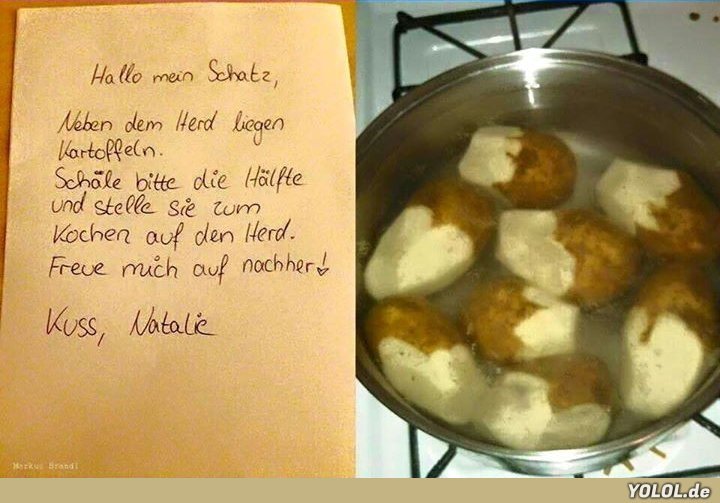 Hallo mein Schatz,
Neben dem Herd liegen
Kartoffeln.
Schäle bitte die Hälfte
und stelle sie zum
Kochen auf den Herd.
Freue mich auf nachher!
Kuss, Natalie
Markus Brandl
YOLOL.de